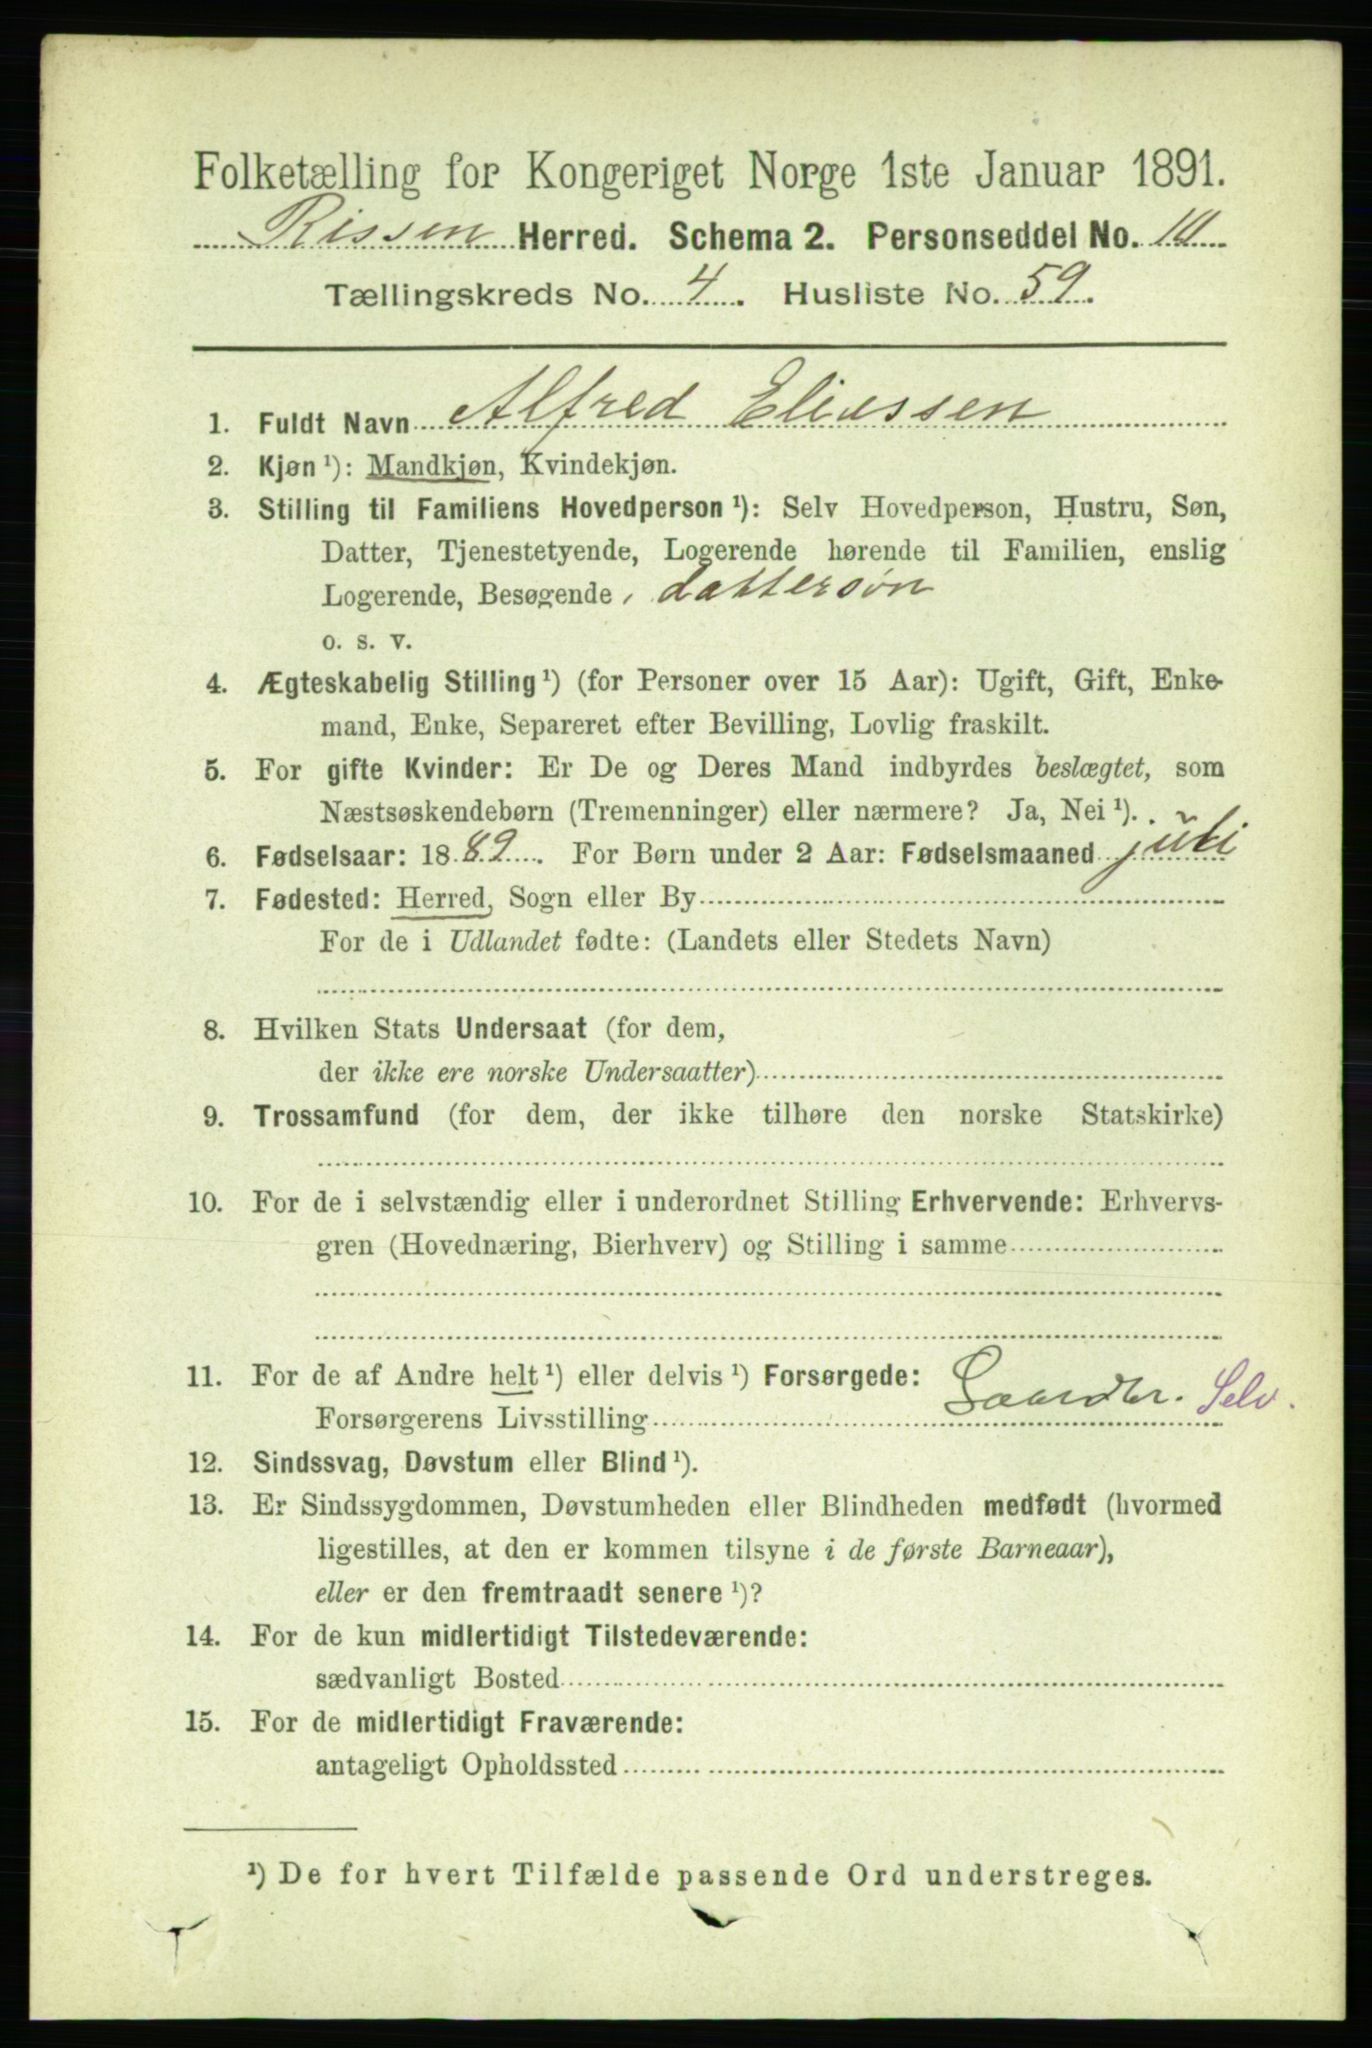 Folketælling for Kongeriget Norge 1ste Januar 1891.
Rissen Herred. Schema 2. Personseddel No. 10
Tællingskreds No. 4. Husliste No. 59.
1. Fuldt Navn Alfred Eliassen
2. Kjøn ¹): Mandkjøn, Kvindekjøn.
3. Stilling til Familiens Hovedperson ¹): Selv Hovedperson, Hustru, Søn,
Datter, Tjenestetyende, Logerende hørende til Familien, enslig
Logerende, Besøgende, dattersøn
o. s. v.
4. Ægteskabelig Stilling ¹) (for Personer over 15 Aar): Ugift, Gift, Enke-
mand, Enke, Separeret efter Bevilling, Lovlig fraskilt.
5. For gifte Kvinder: Er De og Deres Mand indbyrdes beslægtet, som
Næstsøskendebørn (Tremenninger) eller nærmere? Ja, Nei ¹).
6. Fødselsaar: 1889. For Børn under 2 Aar: Fødselsmaaned juli
7. Fødested: Herred, Sogn eller By
For de i Udlandet fødte: (Landets eller Stedets Navn)
8. Hvilken Stats Undersaat (for dem,
der ikke ere norske Undersaatter)
9. Trossamfund (for dem, der ikke tilhøre den norske Statskirke)
10. For de i selvstændig eller i underordnet Stilling Erhvervende: Erhvervs-
gren (Hovednæring, Bierhverv) og Stilling i samme
11. For de af Andre helt ¹) eller delvis ¹) Forsørgede:
Forsørgerens Livsstilling Gaardbr. Selv.
12. Sindssvag, Døvstum eller Blind ¹).
13. Er Sindssygdommen, Døvstumheden eller Blindheden medfødt (hvormed
ligestilles, at den er kommen tilsyne i de første Barneaar),
eller er den fremtraadt senere ¹)?
14. For de kun midlertidigt Tilstedeværende:
sædvanligt Bosted
15. For de midlertidigt Fraværende:
antageligt Opholdssted
¹) De for hvert Tilfælde passende Ord understreges.